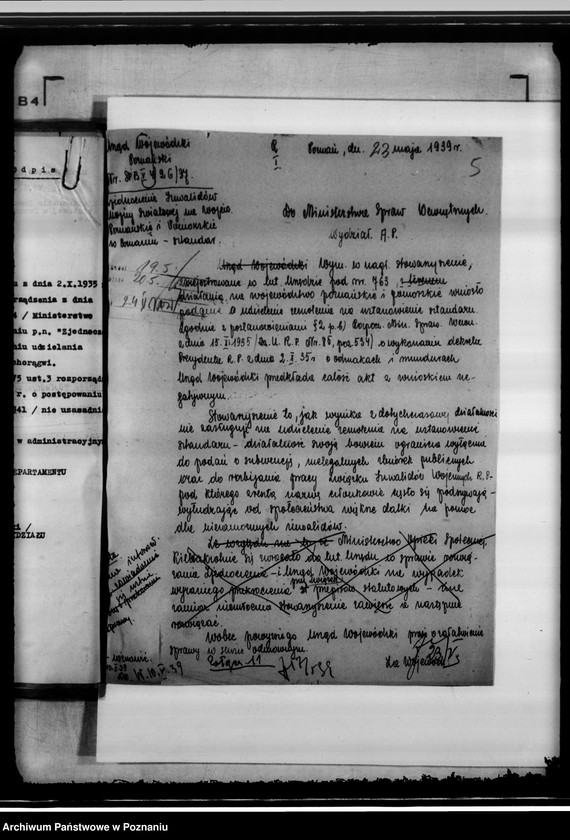 B4
odpis
z dnia 2.X.1935
rządzenia z dnia
/ Ministerstwo
niu p.n. "Zjednocz
niu udzielania
chorągwi.
75 ust.3 rozporządz
r. o postępowaniu
341 / nie uzasadnia
w administracyjnym
EPARTAMENTU
DZIAŁU
Urząd Wojewódzki
Poznański
Poznań, dn. 23 maja 1939 r.
5
Zjednoczenie Inwalidów
Wojny Światowej na Wojew.
Poznańskie i Pomorskie
w Poznaniu - sztandar.
Do Ministerstwa Spraw Wewnętrznych.
Wydział A.P.
19.5.
20.5.
24 V
Urząd Wojewódzki Wym. w nagł. stowarzyszenie,
zarejestrowane w tut. Urzędzie pod nr. 763 z terenem
działania na województwo poznańskie i pomorskie wniosło
podanie o udzielenie zezwolenia na ustanowienie sztandaru
zgodnie z postanowieniami § 2 p. b) Rozpor. Min. Spraw. Wewn.
z dnia 15.XI.1935 / Dz.U.R.P. Nr. 85, poz. 534 / o wykonaniu dekretu
Prezydenta R.P. z dnia 2.X.35r o odznakach i mundurach
Urząd Wojewódzki przedkłada całość akt z wnioskiem ne-
gatywnym.
Stowarzyszenie to, jak wynika z dotychczasowej działalności
nie zasługuje na udzielenie zezwolenia na ustanowienie
sztandaru - działalność swoją bowiem ogranicza wyłącznie
do podań o subwencje, nielegalnych zbiórek publicznych
oraz do rozbijania pracy Związku Inwalidów Wojennych R.P.
pod którego zresztą nazwę członkowie często się podszywają -
wyłudzając od społeczeństwa wielkie datki na pomoc
dla nieznanych inwalidów.
Ze względu na to, że Ministerstwo Opieki Społecznej
kilkakrotnie się zwracało do tut. Urzędu w sprawie rozwią-
zania Zjednoczenia - i Urząd Wojewódzki na wypadek
przez związek
wyraźnego przekroczenia przepisów statutowych - ma
zamiar stowarzyszenie zawiesić a następnie
rozwiązać.
Wobec powyższego Urząd Wojewódzki prosi o załatwienie
sprawy w sensie odmownym.
Za Wojewodę
23/V
W. 10.V.39
Archiwum Państwowe w Poznaniu